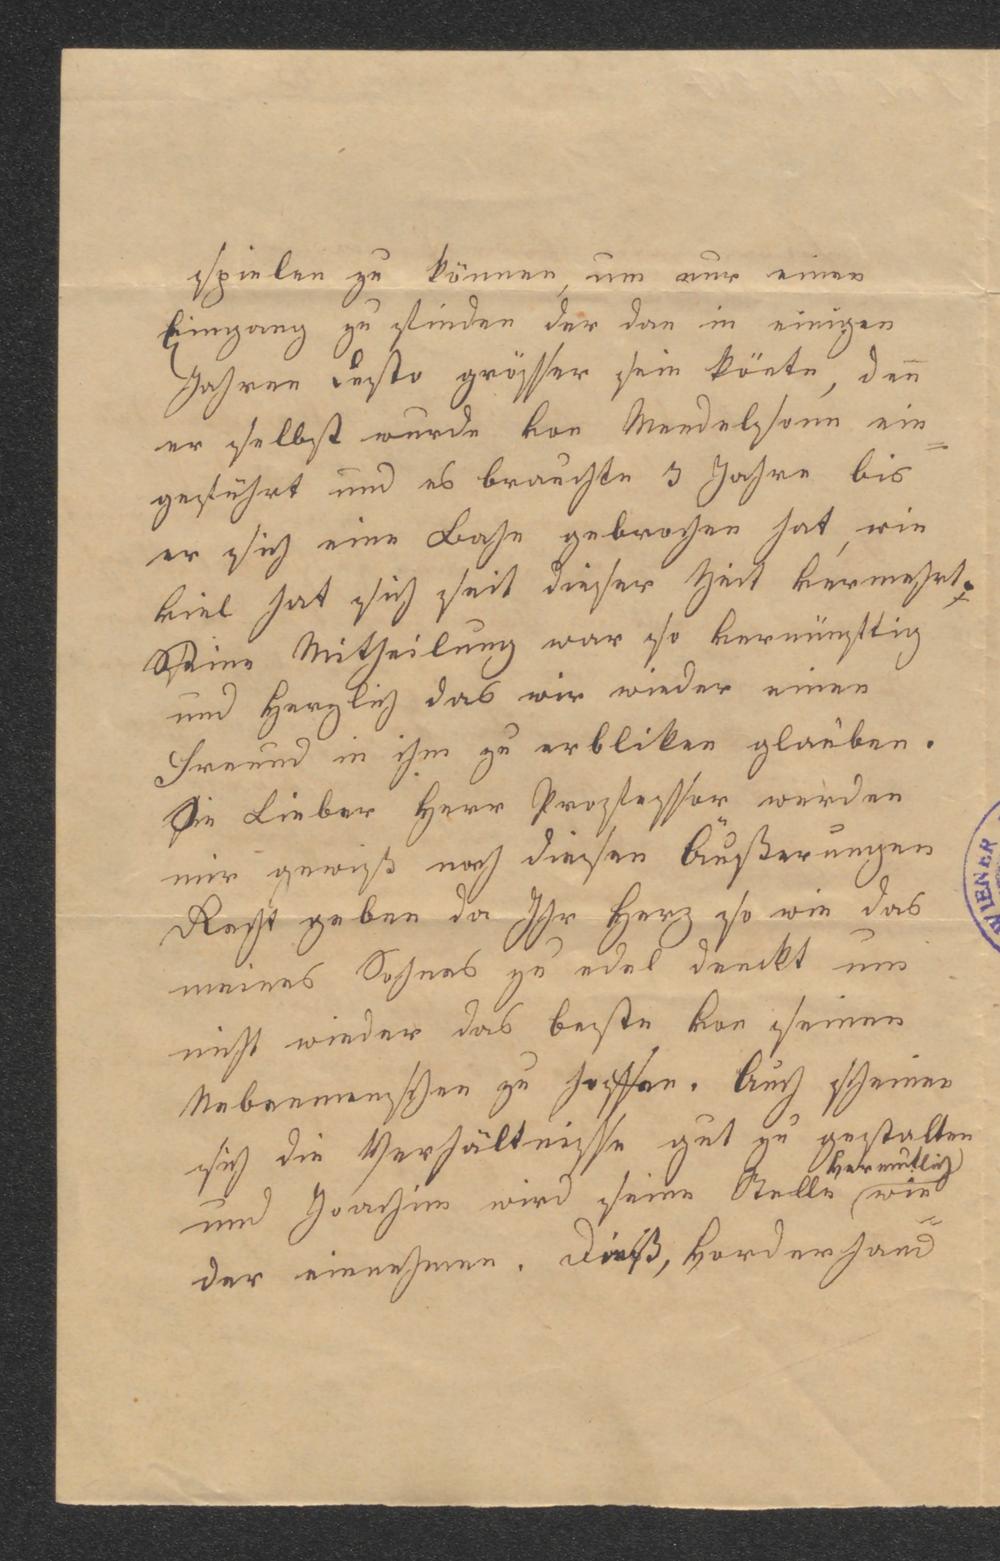 spielen zu können, um nur einen
Eingang zu finden der dan in einigen
Jahren desto grösser sein könte, den̄
er selbst wurde von Mendelsohn ein=
geführt und es brauchte 3 Jahre bis
er sich eine Bahn gebrochen hat, wie
viel hat sich seit dieser Zeit vermehrt.
Seine Mittheilung war so vernünftig
und Herzlich das wir wieder einen
Freund in ihm zu erbliken glauben.
Sie Lieber Herr Professor werden
mir gewiß nach diesen Äußerungen
Recht geben da Ihr Herz so wie das
meines Sohnes zu edel denckt um
nicht wieder das beste von seinen
Nebenmenschen zu hoffen. Auch scheinen
sich die Verhältnisse gut zu gestalten
und Joachim wird seine Stelle vermutlich wie=
der einnehmen. Dieß, vorderhand
WIENER